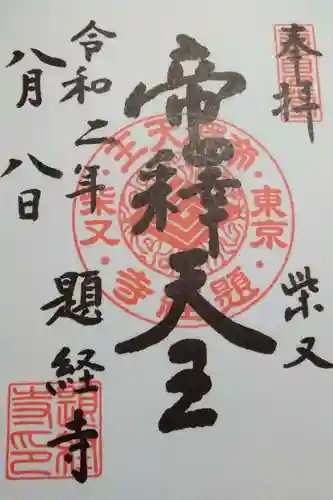 奉拝
柴又
帝釋天王
令和二年
八月八日
題経寺
東京
柴又
帝釋天王
題経寺
題経寺印